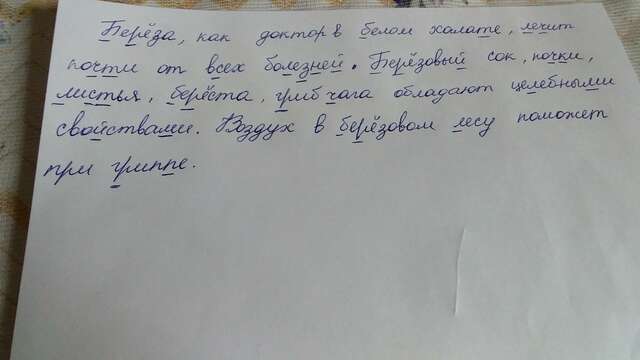 Берёза, как доктор в белом халате, лечит
почти от всех болезней. Берёзовый сок, почки,
листья, берёста, гриб чага обладают целебными
свойствами. Воздух в берёзовом лесу поможет
при гриппе.